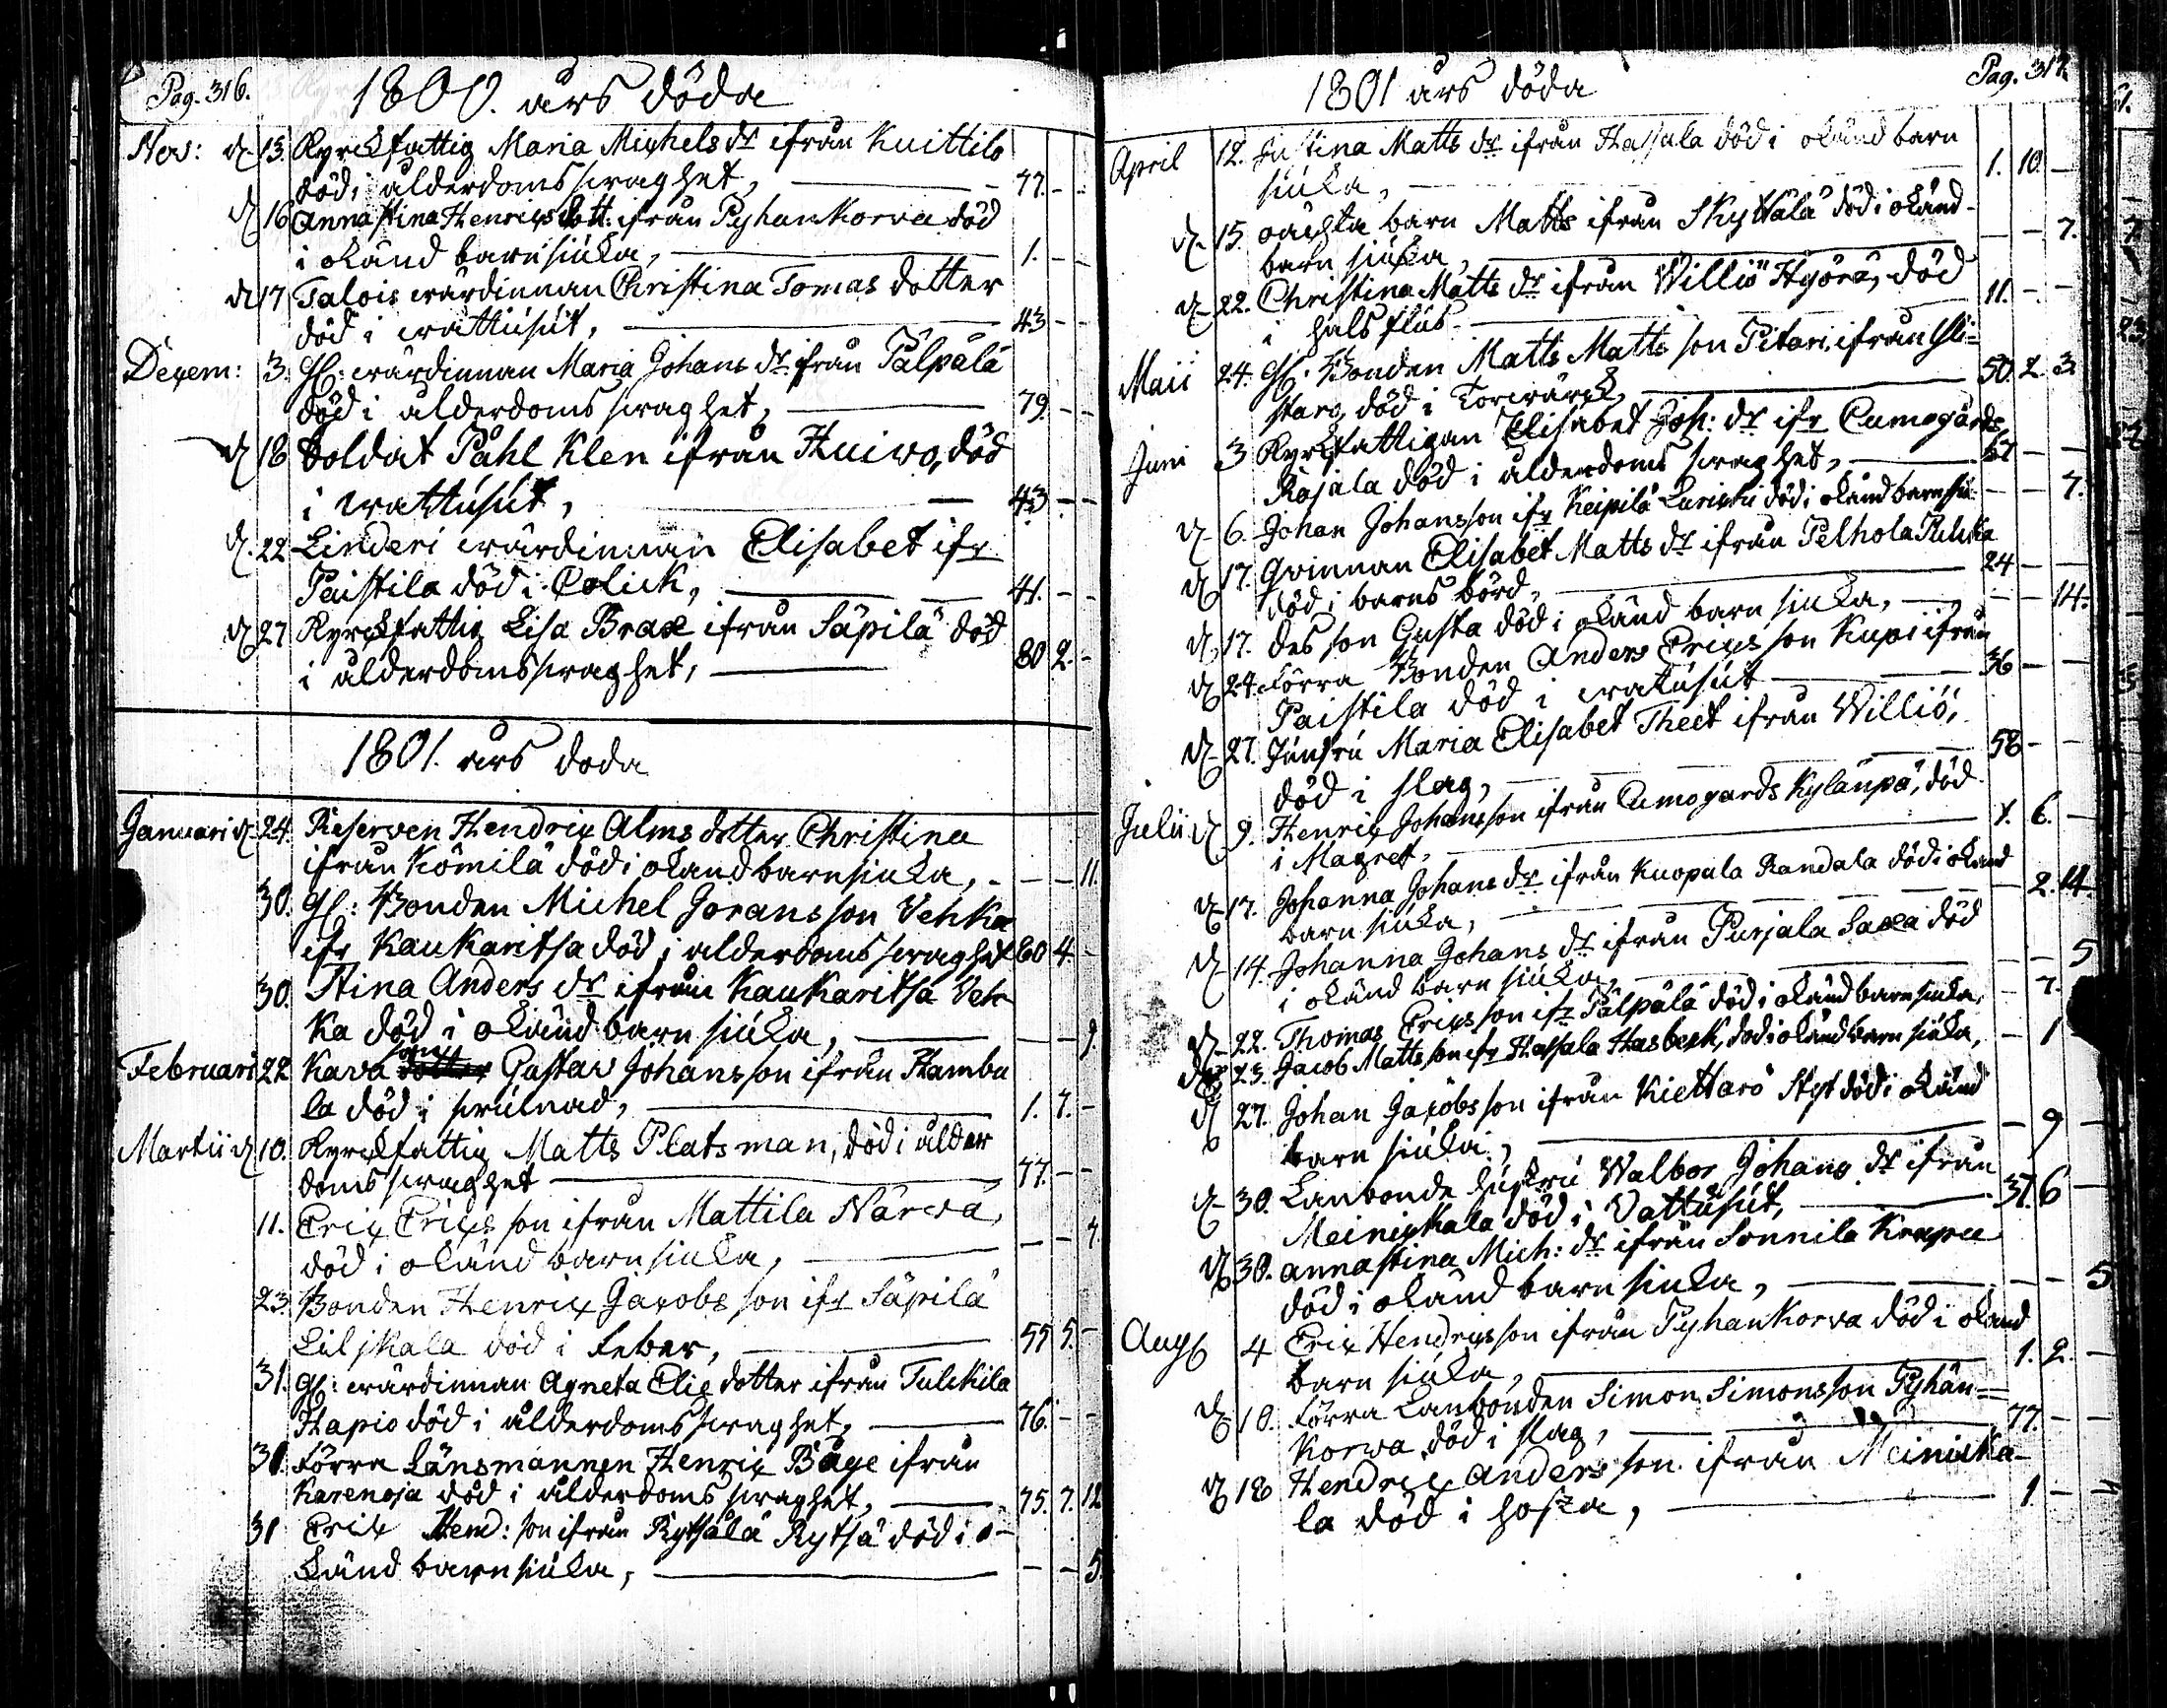 Pag. 316.
1800. års döda
Nov: d 13. Kyrckfattig Maria Michels dr ifrån Kuittilo
död i ålderdoms swaghet, 77. - -
d 16 Anna Stina Henrics dott: ifrån Pyhankorva död
i okänd barnsiuka, 1. - -
d 17 Talois wärdinnan Christina Tomas dotter
död i wattusút, 43 - -
Decem: 3. Gl: wärdinnan Maria Johans dr från Pälpälä
död i ålderdoms swaghet, 79. - -
d 18 Soldat Påhl Klen ifrån Huiwo, död
i wattusút, 43 - -
d. 22 Linderi wärdinnan Elisabet ifr
Paistila död i Colick, 41. - -
d 27 Kyrckfattig Lisa Brax ifrån Säpilä död
i ålderdoms swaghet, 80 2. -
1801. års doda
Januari d. 24. Reserven Hendric Alms dotter Christina
ifrån Kömilä död i okand barnsiuka, - - 11.
30. Gl: Bonden Michel Jorans son Vehka
ifr Kaukaritsa död i alderdoms swaghet 60 4 -
30. Stina Anders dr ifrån Kaukaritsa Veh
ka död i okänd barn siúka, - - 9.
Februari 22 Kava son Gustav Johans son ifrån Hambu
la död i 1. 7. -
Martii d 10. Kyrckfattig Matts Platsman, död i ålder
doms swaghet 77. - -
11. Eric Erics son ifrån Mattila Närvä,
död i okänd barnsiuka, - - 7
23. Bonden Henric Jacobs son ifr Säpilä
Liljkala död i feber, 55 5. -
31. Gl: wärdinnan Agneta Elie dotter ifrån Tulckila
Hapio död i ålderdoms swaghet, 76. - -
31. Förra Länsmannen Henric Båge ifrån
Karenoja död i ålderdoms swaghet, 75. 7. 12
31 Eric Hend: son ifrån Rytsälä Rytsä död i o-
känd barnsiúka, - - 5.
Pag. 317.
1801 års döda
April 12. Justina Matts dr ifrån Hassala död i okänd barn
siúka, 1. 10. -
d. 15. oäckta barn Matts ifrån Skyttälä död i okänd
barn siúka, - - 7.
d. 22. Christina Matts dr ifrån Williö Hyörä, död
i halsflús 11. - -
Maii 24. Gl. Bonden Matts Matts son Pitari ifrån
staro, död i Torrwärck, 50. 2. 3.
Juni 3 Kyrckfattigan Elisabet Joh: dr ifr Cumogårds
Rajala död i ålderdoms swaghet, 67 - -
d. 6. Johan Johansson ifr Keipilä död i okänd barnsiu: - - 7.
d 17. Qvinnan Elisabet Matts dr ifrån Pelhola
död i barns börd, 24 - -
d. 17. des son Gusta död i okänd barn siuka, - - 14.
d 24. Förra Bonden Anders Erics son Kupi ifrån
Paistila död i watúsút 36 - -
d. 27. Júnfrú Maria Elisabet Theet ifrån Williö,
död i slag, 58 - -
Julii d 9. Henric Johansson ifrån Cumogards Kylänpä, död
i Magret, 1. 6. -
d. 17. Johanna Johans dr ifrån Kuopala Randala död i okänd
barn siúka, - 2. 14.
d. 14. Johanna Johans dr ifrån Purjala Saxa död
i okänd barn siúka, - - 5
d. 22. Thomas Erics son ifr Pälpälä död i okänd barn siuka, - 7.
23. Jacob Matts son ifr Hassala Hasbeck, död i okänd barn siúka, - 1
d 27. Johan Jacobs son ifrån Kiettarö död i okänd
barn siúka, - 9
d. 30. Lanbonde hústrú Walbor Johans dr ifrån
Meinickala död i Vattúsút, 37. 6 -
d 30. Anna Stina Mich: dr ifrån Sonnila Krapu
död i okänd barn siuka, - - 5
Aug 4 Eric Hendrics son ifrån Pyhankorva död i okänd
barn siúka, 1. 2. -
d. 10. Förra Lanbonden Simon Simons son Pyhän=
korwa död i slag, 77. - -
d 18 Hendric Anders son ifrån Meinicka-
la död i hosta, 1 - -